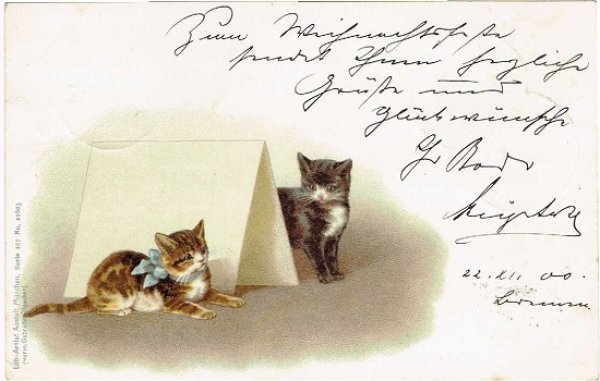 Zum Weihnachtsfeste
sendet Ihnen herzliche
Grüße und
Glückwünsche
Ihr
22. XI. 00.
Lith.-Artist. Anstalt München, Serie 207 No. 21603
(vorm. Gebrüder Obpacher)